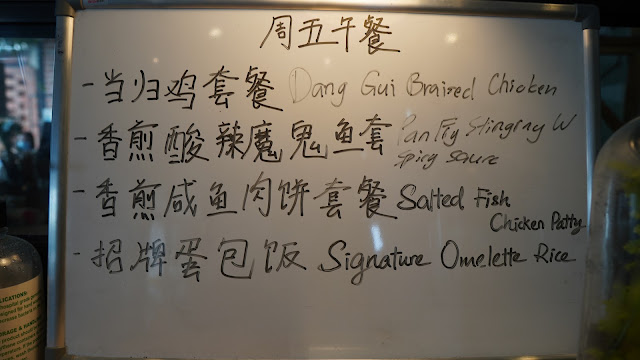 周五午餐
-当归鸡套餐 Dang Gui Braized Chicken
-香煎酸辣魔鬼鱼套 Pan Fry Stingray W
spicy sauce
-香煎咸鱼肉饼套餐 Salted Fish
Chicken Patty
-招牌蛋包饭 Signature Omelette Rice